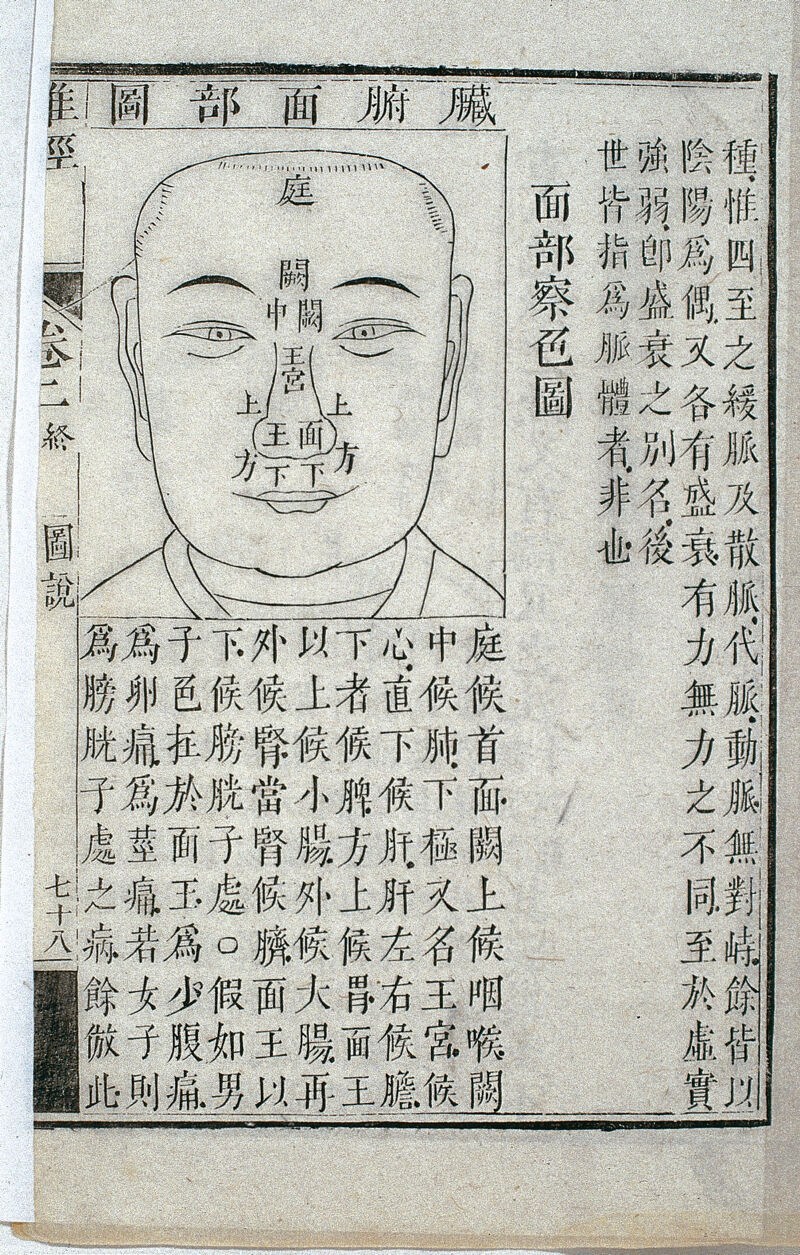 種惟四至之緩脈及散脈代脈動脈無對峙餘皆以
陰陽爲偶又各有盛衰有力無力之不同至於虛實
強弱卽盛衰之別名後
世皆指爲脈體者非也
面部察色圖
臟腑面部圖
庭
闕
闕中
王宮
面王
上
上
方
方
下
下
庭候首面闕上候咽喉闕
中候肺下極又名王宮候
心直下候肝肝左右候膽
下者候脾方上候胃面王
以上候小腸外候大腸再
外候腎當腎候臍面王以
下候膀胱子處○假如男
子色在於面王爲少腹痛
爲卵痛爲莖痛若女子則
爲膀胱子處之病餘倣此
經
卷二
終
圖說
七十八